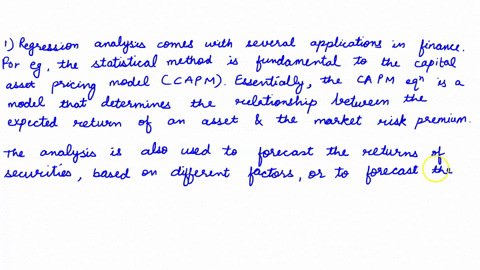 1) Regression analysis comes with several applications in finance.
For eg, the statistical method is fundamental to the capital
asset pricing model (CAPM). Essentially, the CAPM eqⁿ is a
model that determines the relationship between the
expected return of an asset & the market risk premium.
The analysis is also used to forecast the returns of
securities, based on different factors, or to forecast the